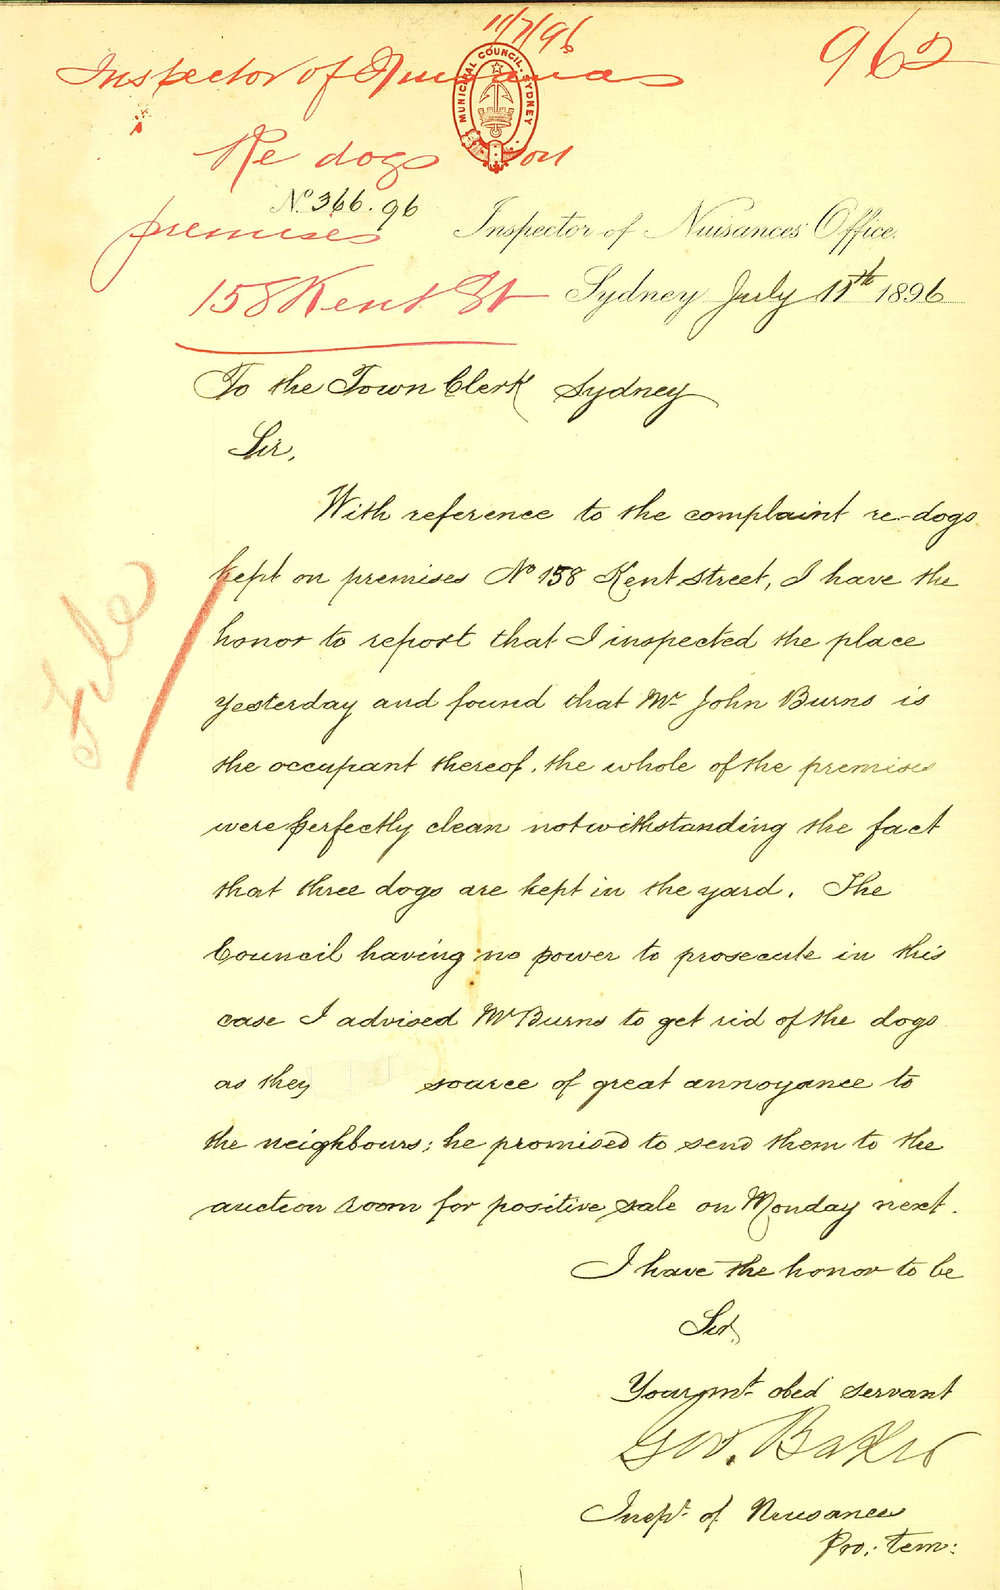 11/7/96
962
Inspector of Nuisances
MUNICIPAL COUNCIL. SYDNEY
Re dogs on
No. 366. 96
premises
Inspector of Nuisances Office.
158 Kent St
Sydney July 11th 1896
To the Town Clerk Sydney
Sir,
With reference to the complaint re-dogs
kept on premises No 158 Kent Street, I have the
File
honor to report that I inspected the place
yesterday and found that Mr John Burns is
the occupant thereof. the whole of the premises
were perfectly clean notwithstanding the fact
that three dogs are kept in the yard. The
Council having no power to prosecute in this
case I advised Mr Burns to get rid of the dogs
as they source of great annoyance to
the neighbours; he promised to send them to the
auction room for positive sale on Monday next.
I have the honor to be
Sir,
Your mt. obed servant
Geo. Baker
Inspr. of Nuisances
Pro: tem: